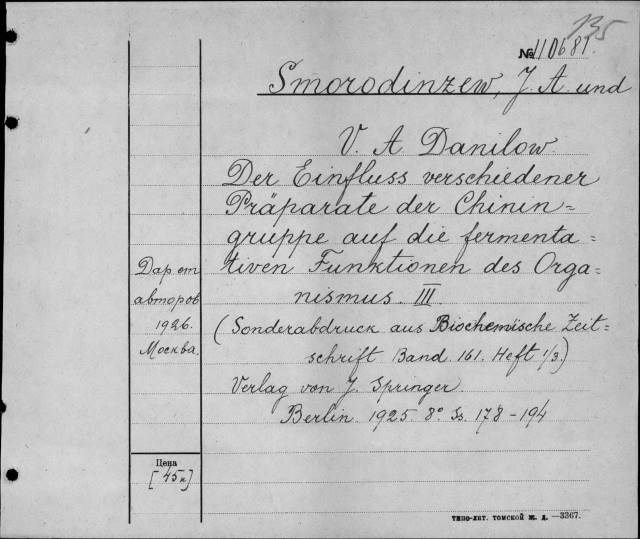 135
№ 110681.
Smorodinzew, J. A. und
V. A Danilow.
Der Einfluss verschiedener
Präparate der Chinin=
gruppe auf die fermenta=
tiven Funktionen des Orga=
nismus. III.
(Sonderabdruck aus Biochemische Zeit=
schrift Band. 161. Heft 1/3.)
Verlag von J. Springer.
Berlin. 1925. 8° Ss. 178-194
Дар от
авторов
1926.
Москва.
Цена
[45к]
ТИПО-ЛИТ. ТОМСКОЙ Ж. Д. —3367.